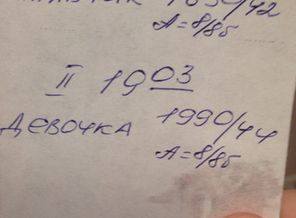 1850/42
A=8/8б
II 1903
ДЕВОЧКА 1990/44
A=8/8б